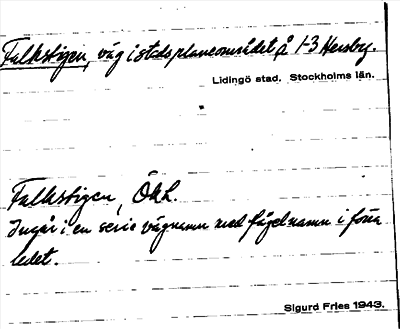 Falkstigen, väg i stadsplaneområdet å 1-3 Hersby.
Lidingö stad. Stockholms län.
Falkstigen, Ökl.
Ingår i en serie vägnamn med fågelnamn i förra
ledet.
Sigurd Fries 1943.